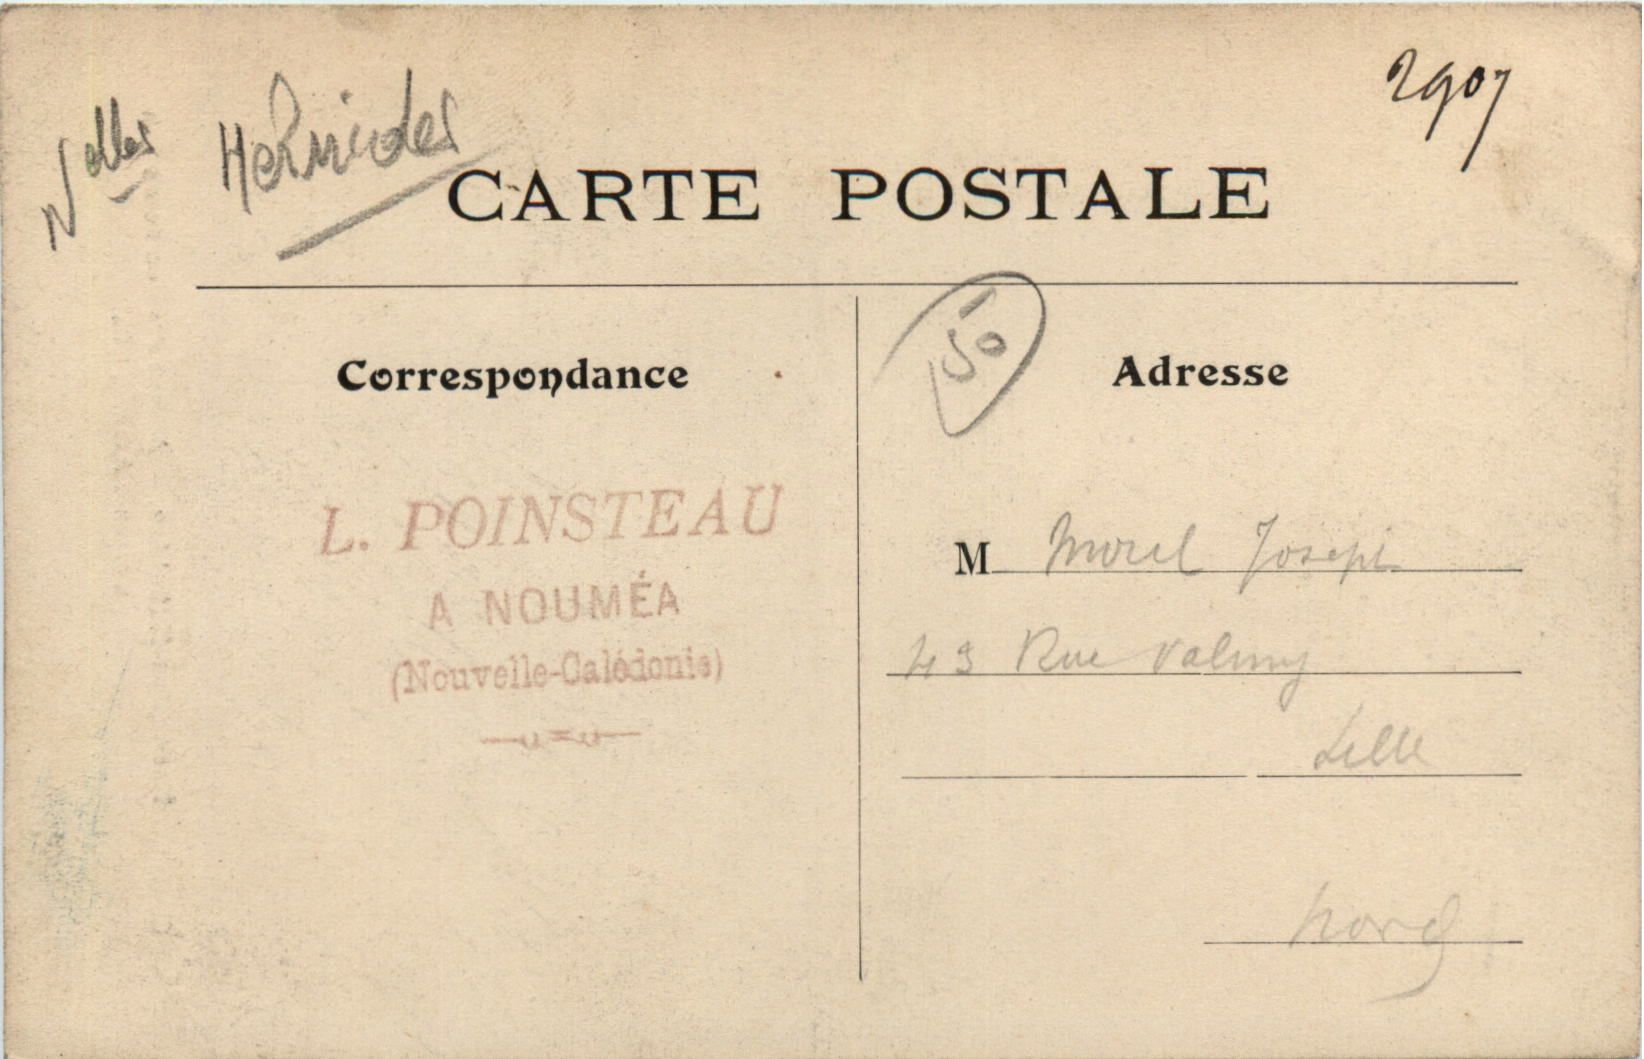 Nelles Hebrides
2907
CARTE POSTALE
50
Correspondance
Adresse
L. POINSTEAU
A NOUMÉA
(Nouvelle-Calédonie)
M Morel Joseph
43 Rue Valmy
Lille
Nord